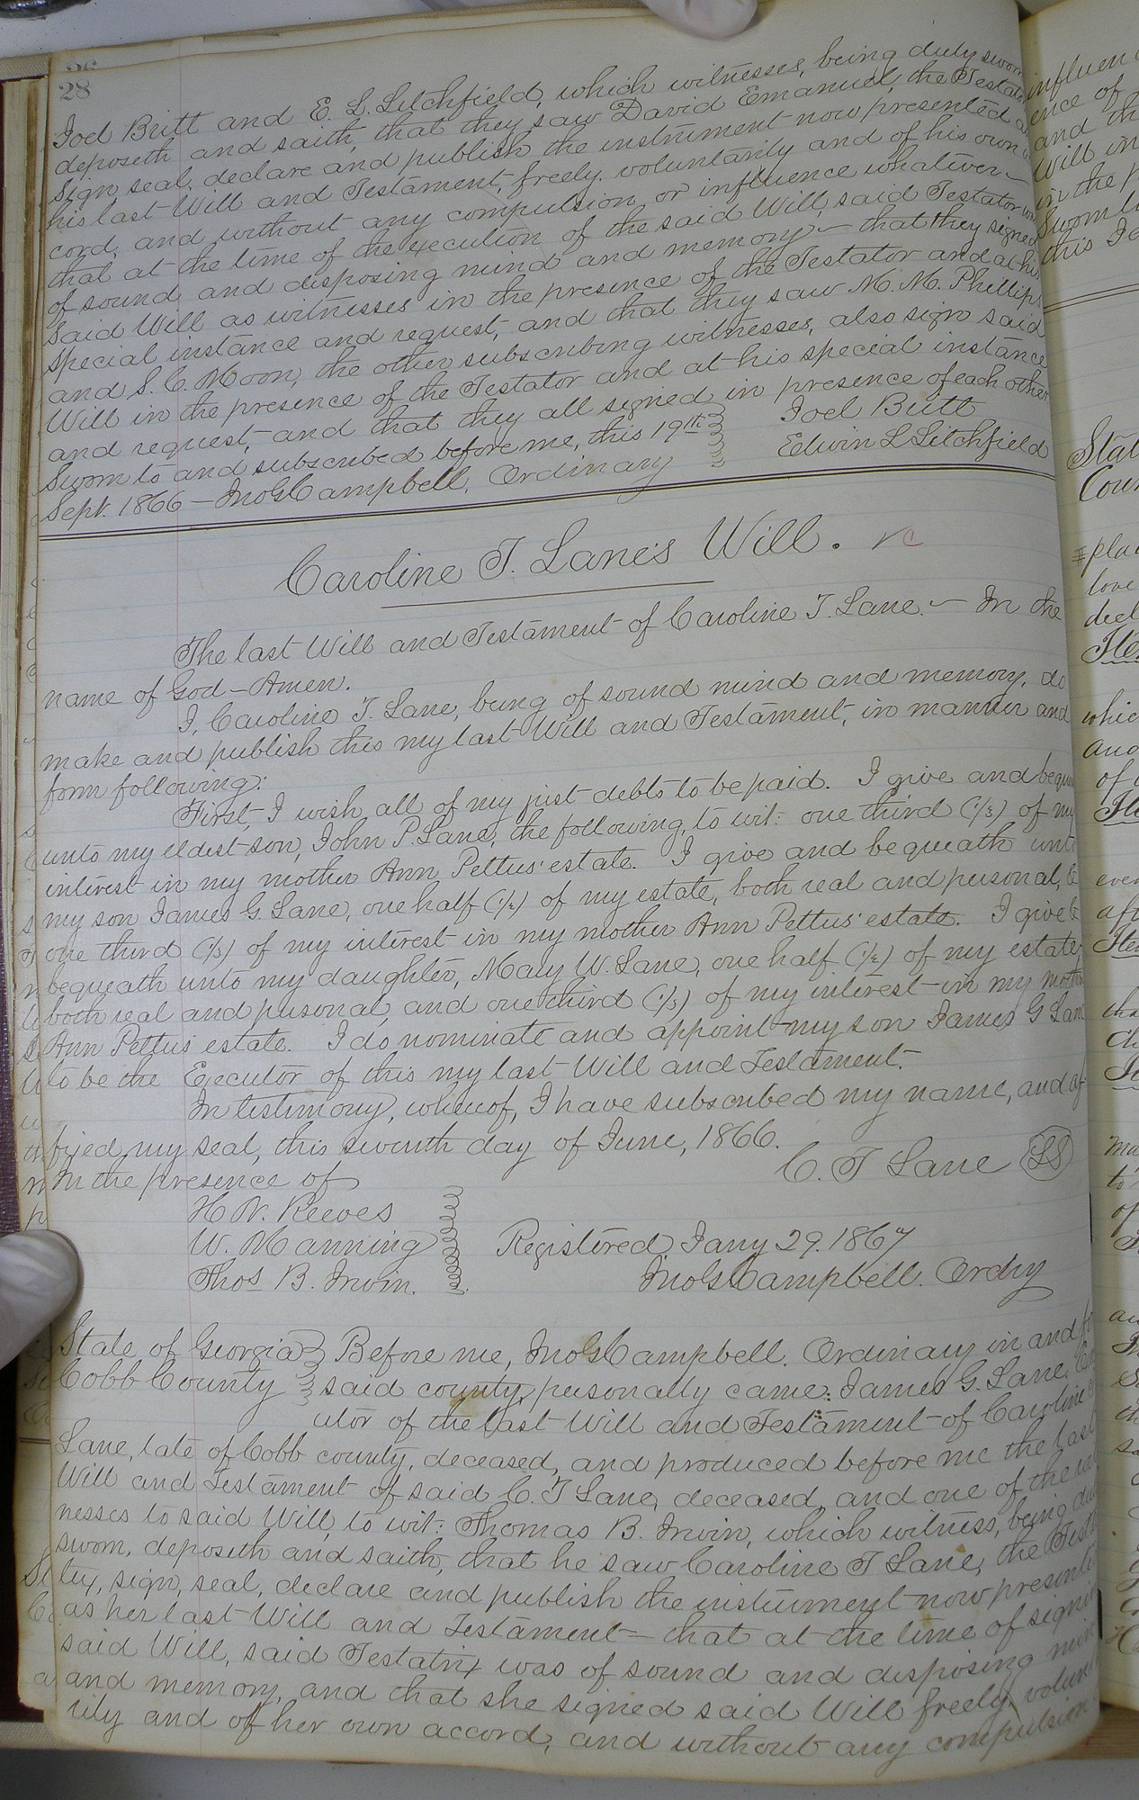 28
Joel Britt and E. L. Litchfield, which witnesses, being duly sworn
deposeth and saith, that they saw David Emanuel, the Testator
sign, seal, declare and publish the instrument now presented as
his last Will and Testament, freely, voluntarily and of his own
cord, and without any compulsion or influence whatever —
that at the time of the execution of the said Will, said Testator was
of sound and disposing mind and memory — that they signed
said Will as witnesses in the presence of the Testator and at his
special instance and request, and that they saw M. M. Phillips
and S. C. Moon, the other subscribing witnesses, also sign said
Will in the presence of the Testator and at his special instance
and request, and that they all signed in presence of each other
Sworn to and subscribed before me, this 19th Joel Britt
Sept. 1866 — Jno G Campbell, Ordinary Edwin L Litchfield
Caroline T. Lane's Will.
The last Will and Testament of Caroline T. Lane. — In the
name of God — Amen.
I, Caroline T. Lane, being of sound mind and memory, do
make and publish this my last Will and Testament, in manner and
form following:
First, I wish all of my just debts to be paid. I give and beque
unto my eldest son, John P. Lane, the following, to wit: one third (1/3) of my
interest in my mother Ann Pettus' estate. I give and bequeath unto
my son James G. Lane, one half (1/2) of my estate, both real and personal, &
one third (1/3) of my interest in my mother Ann Pettus' estate. I give &
bequeath unto my daughter, Mary W. Lane, one half (1/2) of my estate,
both real and personal and one third (1/3) of my interest in my mother
Ann Pettus' estate. I do nominate and appoint my son James G Lane
to be the Executor of this my last Will and Testament.
In testimony, whereof, I have subscribed my name, and af
fixed my seal, this seventh day of June, 1866.
In the presence of C. T Lane LS
H N. Reeves
W. Manning Registered Jany 29. 1867
Thos B. Irwin. Jno G Campbell. Ordry
State of Georgia Before me, Jno G Campbell. Ordinary in and for
Cobb County said county, personally came James G. Lane, Exe
utor of the last Will and Testament of Caroline
Lane, late of Cobb county, deceased, and produced before me the last
Will and Testament of said C. T Lane, deceased, and one of the wit
nesses to said Will, to wit: Thomas B. Irwin, which witness, being duly
sworn, deposeth and saith, that he saw Caroline T Lane, the Testa
trix, sign, seal, declare and publish the instrument now presented
as her last Will and Testament — that at the time of signing
said Will, said Testatrix was of sound and disposing mind
and memory, and that she signed said Will freely, volunta
rily and of her own accord, and without any compulsion